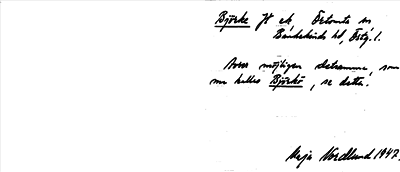 Björke gd ek, Östomta sn
Bankekinds hd, Östg. l.
Avser möjligen detsamma, som
nu kallas Björkö, se detta.
Maja Nordlund 1947.